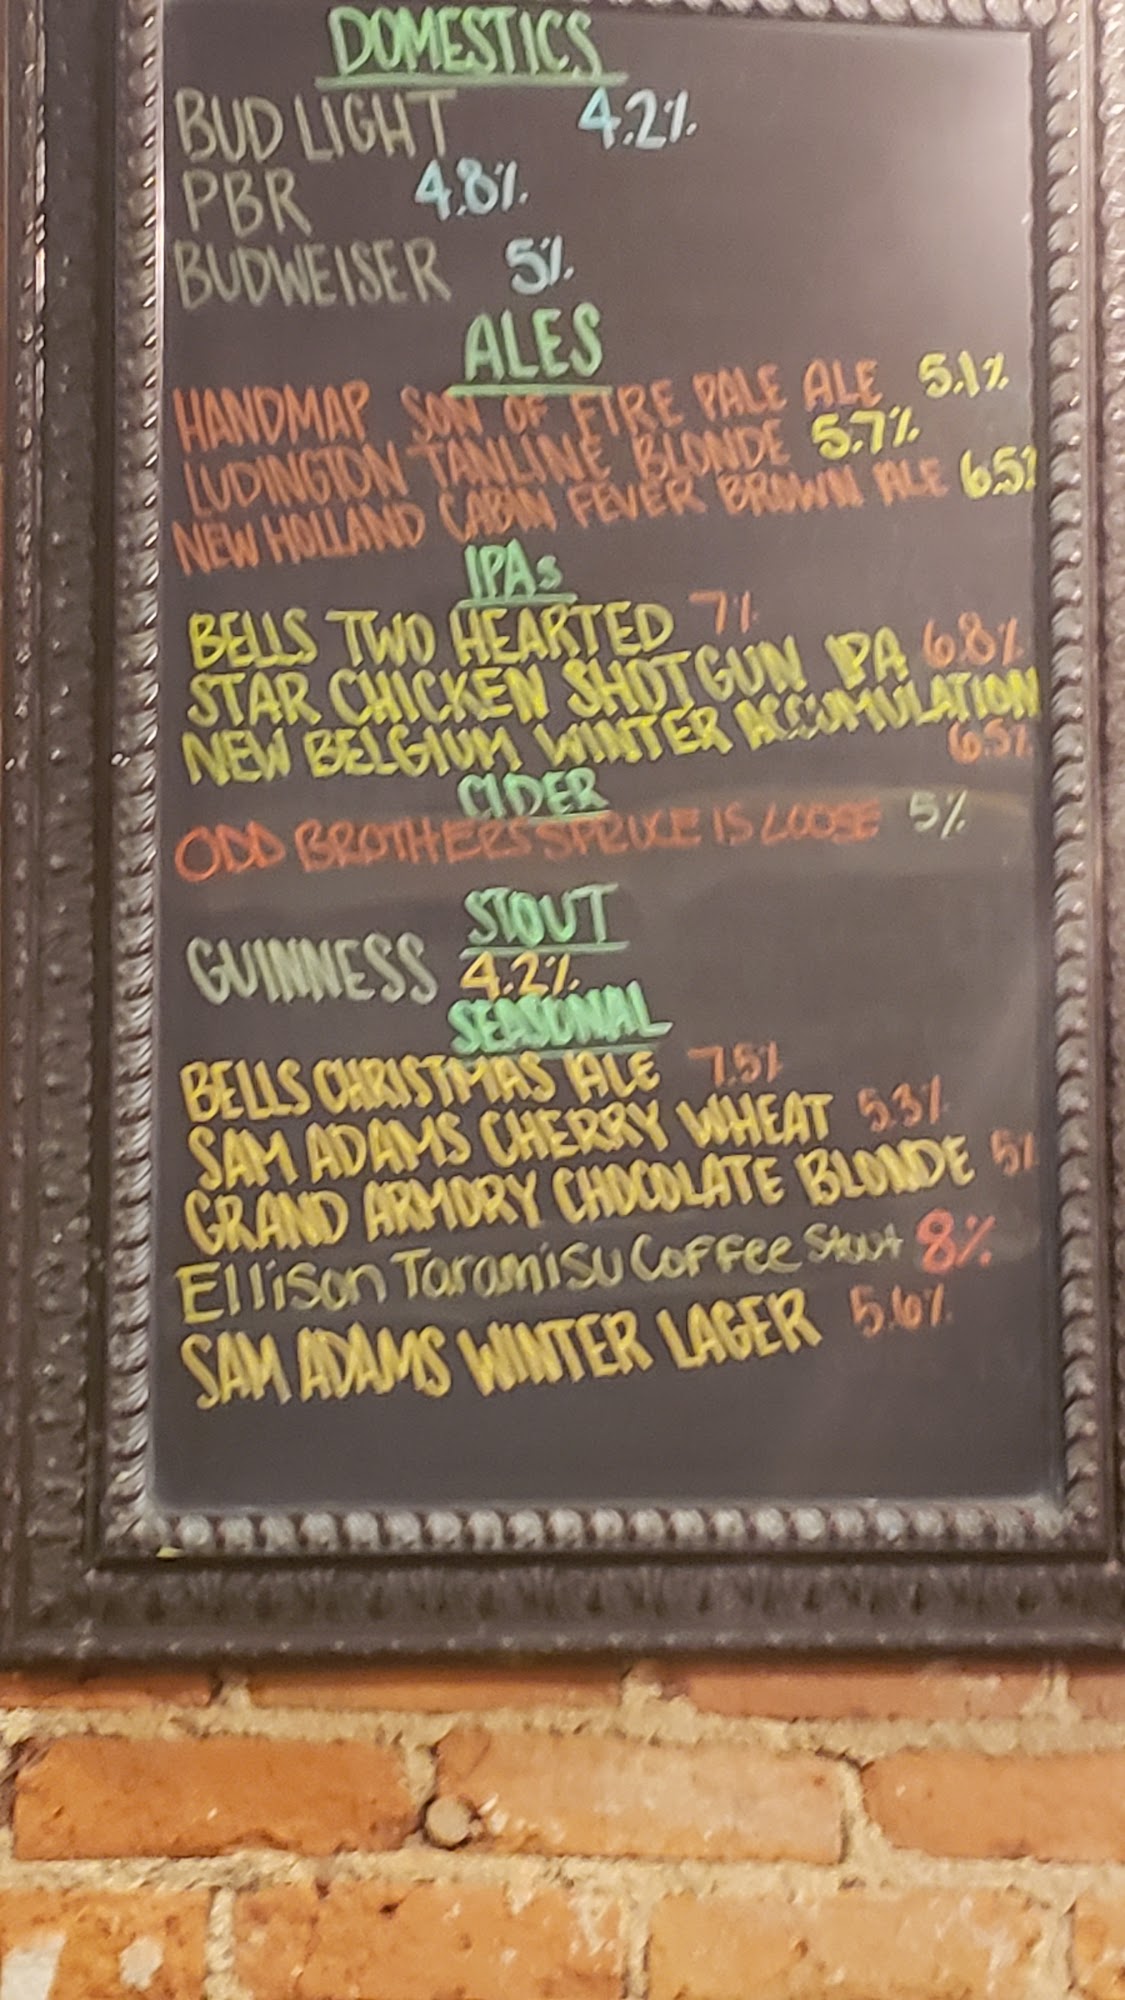 DOMESTICS
BUD LIGHT 4.2%
PBR 4.8%
BUDWEISER 5%
ALES
HANDMAP SON OF FIRE PALE ALE 5.1%
LUDINGTON TANLINE BLONDE 5.7%
NEW HOLLAND CABIN FEVER BROWN ALE 6.5%
IPAs
BELLS TWO HEARTED 7%
STAR CHICKEN SHOTGUN IPA 6.8%
NEW BELGIUM WINTER ACCUMULATION
6.5%
CIDER
ODD BROTHERS SPRUCE IS LOOSE 5%
STOUT
GUINNESS 4.2%
SEASONAL
BELLS CHRISTMAS ALE 7.5%
SAM ADAMS CHERRY WHEAT 5.3%
GRAND ARMORY CHOCOLATE BLONDE 5%
Ellison Taramisu Coffee Stout 8%
SAM ADAMS WINTER LAGER 5.6%